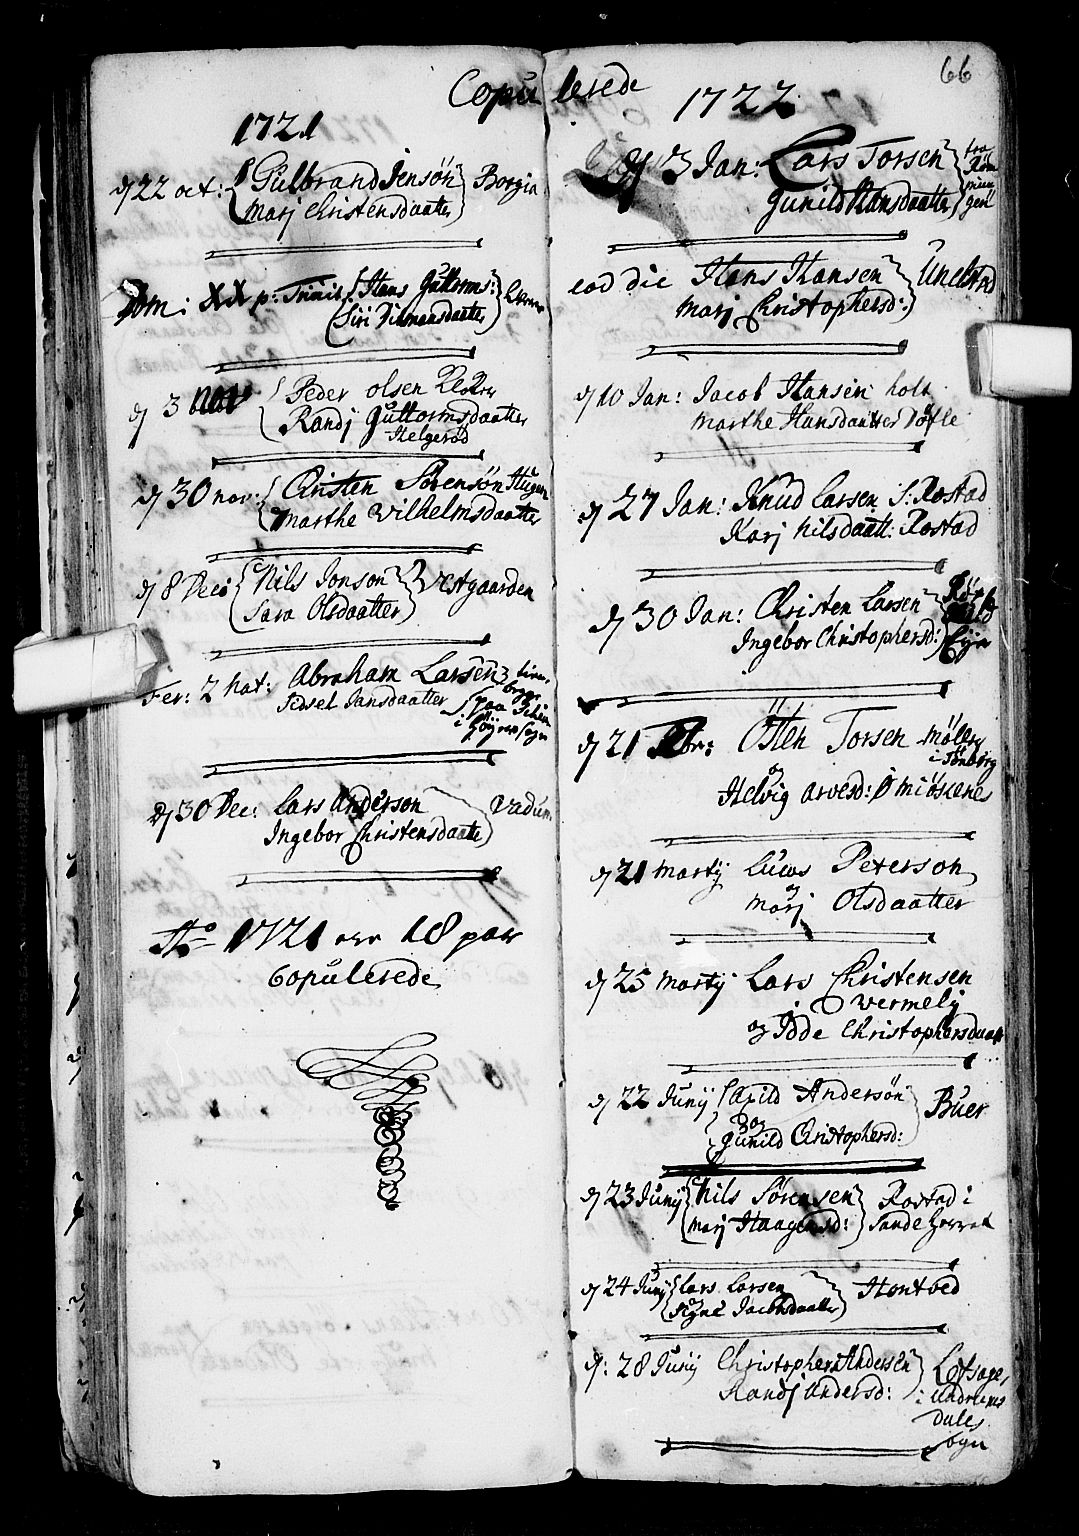 66
Copulerede
1721
dj 22 oct: Gulbrand Jensøn Borgin
Marj Christensdaatter
Dom: XX p: Trinit: Hans Guttorms:
Siri
dj 3 nov Peder olsen
Randj Guttormsdaatter
Helgerød
dj 30 nov: Christen Sørensøn
Marthe Wilhelmsdaatter
dj 8 Dec: Nils Jonson Vestgaarden
Sara Olsdaatter
Fer: 2 nat: Abraham Larsen
Sidsel Jansdaatter paa
i sogn
dj 30 Dec: Lars Anderson Vadum
Ingebor Christensdaatter
Ao 1721 ere 18 par
Copulerede
1722
dj 3 Jan: Lars Torsen fra
Gunild Hansdaatter
eod die Hans Hansen Unelstad
Marj Christophersd:
dj 10 Jan: Jacob Hansen holt
Marthe Hansdaatter Tøfle
dj 27 Jan: Knud Larsen S: Rostad
Karj Nilsdaatt: Rostad
dj 30 Jan: Christen Larsen
Ingebor Christophersd:
dj 21 Febr: Østen Torsen Møller
i Tønsberg
og
Helvig Arvesd: Ø miøscenes
dj 21 Martij Lucas Peterson
og
Marj Olsdaatter
dj 25 Martij Lars Christensen
i Vermelij
og Idde Christophersdaatt
dj 22 Junij Axild Andersøn Buer
og
Gunild Christophersd:
dj 23 Junij Nils Sørensen Rostad i
Marj Haagensd: Sande
dj 24 Junij Lars Larsen Hontved
Signe Jacobsdaatter
dj: 28 Junij Christopher Andersen
Randj Andersd: i
dales
sogn